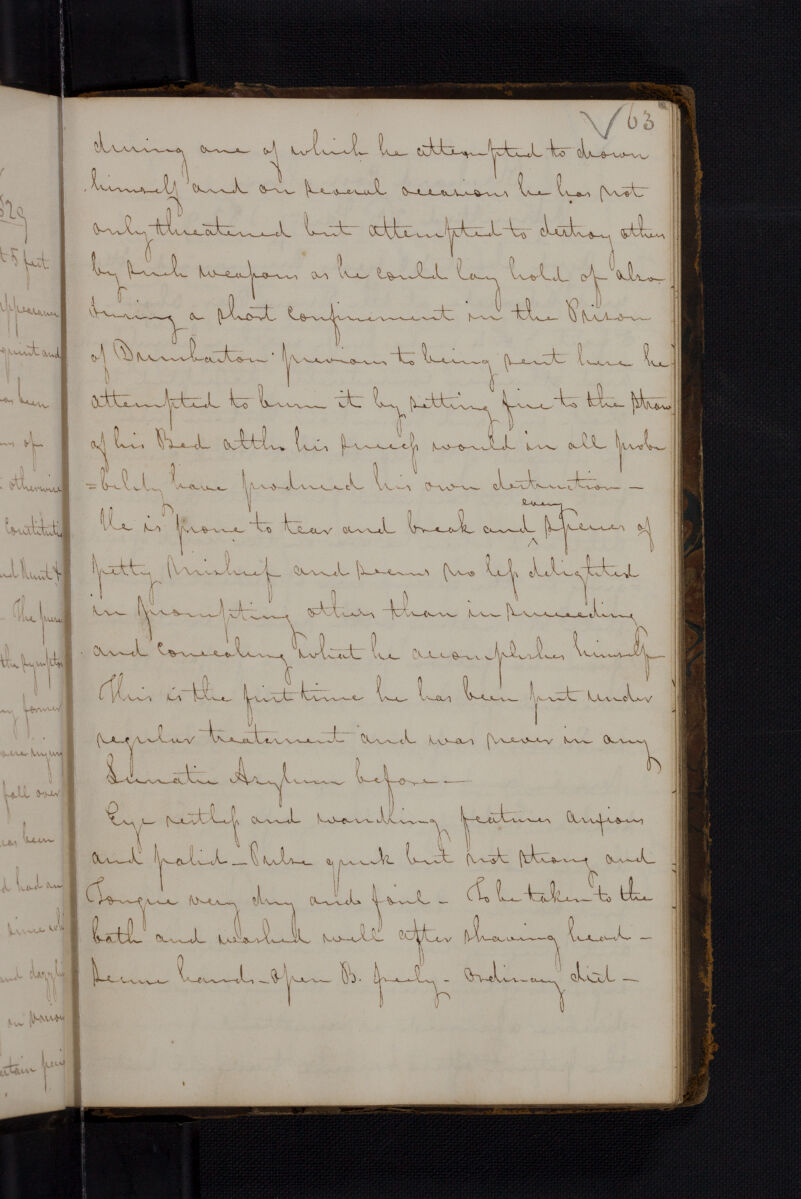 63
during one of which he attempted to drown
himself and on several occasions he has not
only threatened but attempted to destroy others
by such weapons as he could lay hold of also
during a short confinement in the Prison
of Dumbarton previous to being sent here he
attempted to burn it by setting fire to the straw
of his Bed altho his success would in all proba
=bility have produced his own destruction —
every
He is prone to tear and break and species of
petty mischief and seems no less delighted
in prompting others than in succeeding
and concealing what he accomplishes himself
This is the first time he has been put under
regular treatment and was never in any
Lunatic Asylum before —
Eye restless and wandring features anxious
and palid — Pulse quick but not strong and
Tongue very dry and foul — To be taken to the
bath and washed well after shaving head —
Secure hands — open B. freely — ordinary diet —
829
t 5 feet
appearance
squint and
as been
of
otherwise
Constitutio
The
the sympto
ny former
fall over
as been
d had an
since
and
on various
certain